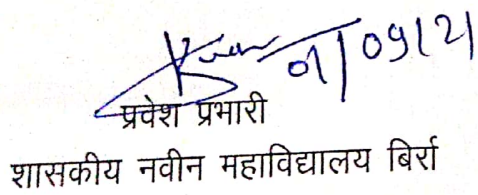 01/09/21
प्रवेश प्रभारी
शासकीय नवीन महाविद्यालय बिर्रा